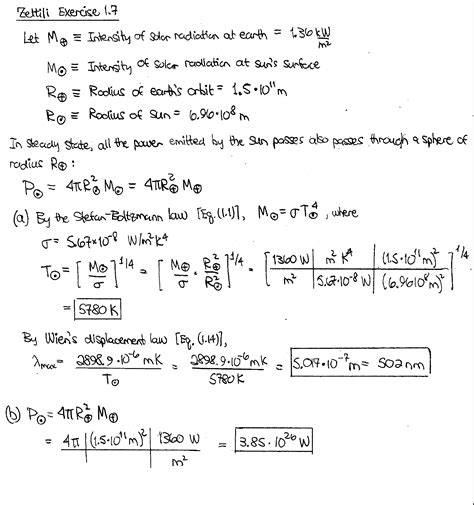 Zettili Exercise 1.7
Let M⊕ ≡ Intensity of solar radiation at earth = 1.36 kW/m²
M⊙ ≡ Intensity of solar radiation at sun's surface
R⊕ ≡ Radius of earth's orbit = 1.5·10¹¹ m
R⊙ ≡ Radius of sun = 6.96·10⁸ m
In steady state, all the power emitted by the sun passes also passes through a sphere of
radius R⊕:
P⊙ = 4πR⊙² M⊙ = 4πR⊕² M⊕
(a) By the Stefan-Boltzmann law [Eq.(1.1)], M⊙ = σT⊙⁴, where
σ = 5.67×10⁻⁸ W/m²K⁴
T⊙ = [M⊙/σ]^1/4 = [M⊕/σ · R⊕²/R⊙²]^1/4 = [1360 W/m² | m² K⁴/5.67·10⁻⁸ W | (1.5·10¹¹ m)²/(6.96·10⁸ m)²]^1/4
= 5780 K
By Wien's displacement law [Eq.(1.14)],
λmax = 2898.9·10⁻⁶ mK/T⊙ = 2898.9·10⁻⁶ mK/5780K = 5.017·10⁻⁷ m = 502 nm
(b) P⊙ = 4πR⊕² M⊕
= 4π | (1.5·10¹¹ m)² | 1360 W/m² = 3.85·10²⁶ W